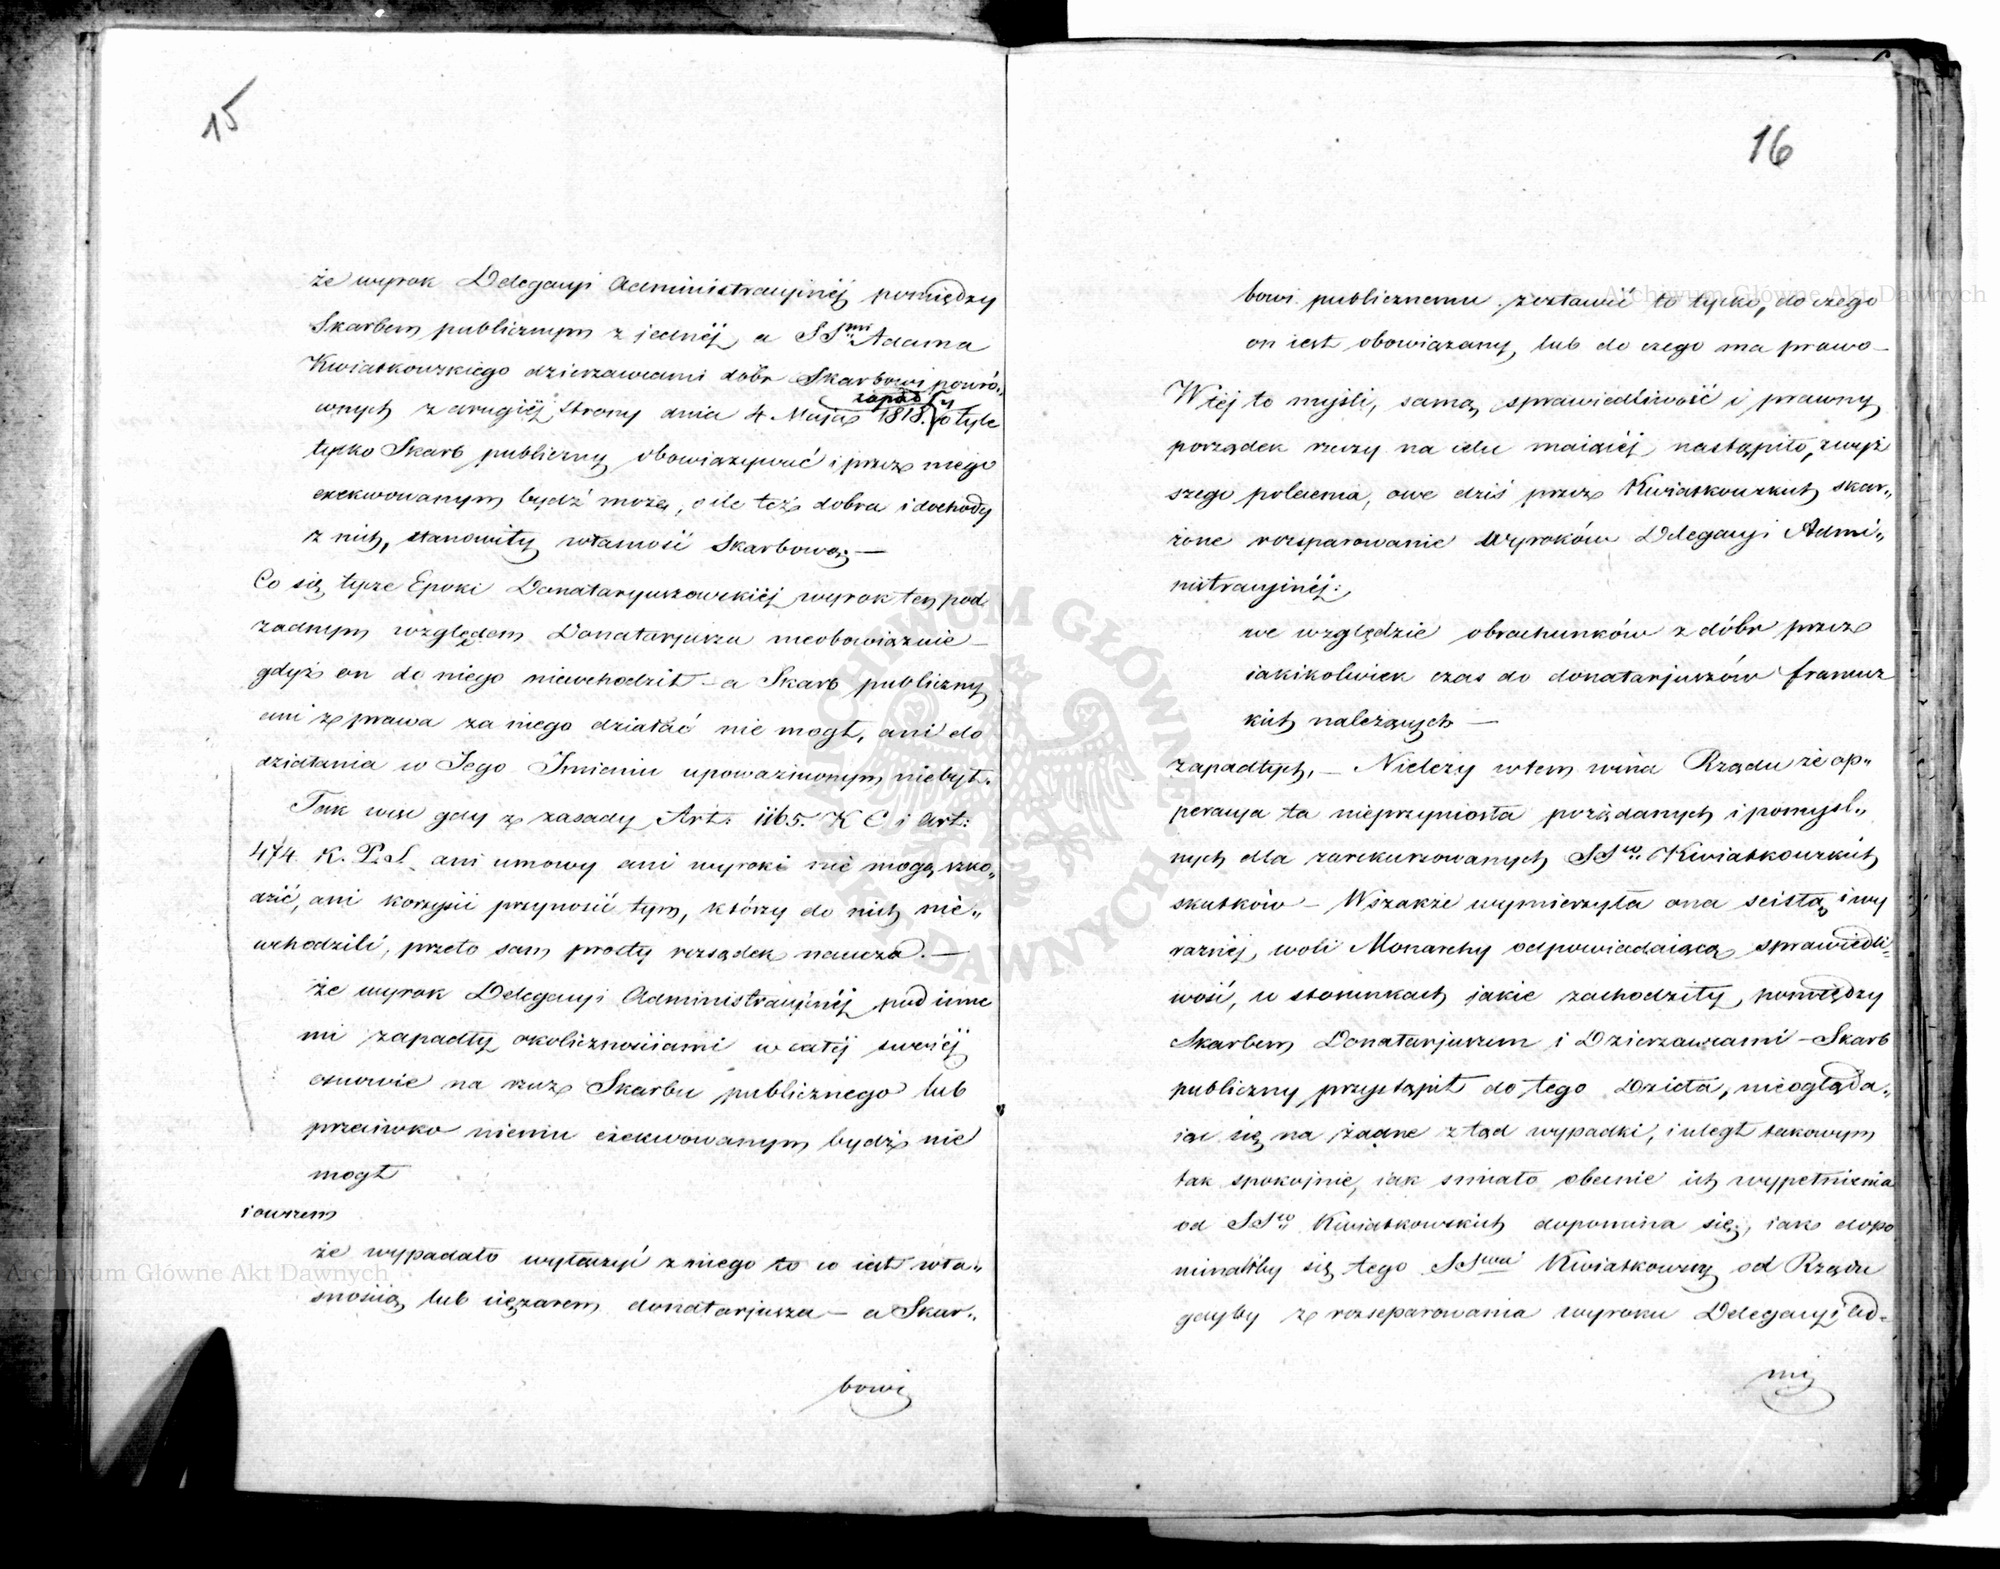 15
że wyrok Delegacyi Administracyinéj pomiędzy
Skarbem publicznym z jednéj a SSmi Adama
Kwiatkowskiego dzierzawcami dóbr Skarbowi powró„
wnych z drugiéj strony dnia 4 Maja 1818. zapadły o tyle
tylko Skarb publiczny obowiązywać i przez niego
exekwowanym bydź może, o ile też dobra i dochody
z nich, stanowiły własność Skarbową; —
Co się tycze Epoki Donataryuszowskiéj wyrok ten pod
żadnym względem Donatarjusza nieobowiązuie —
gdyż on do niego niewchodził — a Skarb publiczny
ani z prawa za niego działać nie mogł, ani do
działania w Jego Imieniu upoważnionym niebył.
Tak więc gdy z zasady Art: 1165. K C i Art:
474 K. P. S. ani umowy ani wyroki nie mogą szko„
dzić, ani korzyści przynosić tym, którzy do nich nie„
wchodzili, przeto sam prosty rozsądek naucza. —
że wyrok Delegacyi Administracyinéj pod inne
mi zapadły okolicznościami w całéj swoiéj
osnowie na rzecz Skarbu publicznego lub
przeciwko niemu exekwowanym bydź nie
mogł
i owszem
że wypadało wyłączyć z niego to co iest wła„
snością lub ciężarem donatarjusza — a Skar„
bowi
16
bowi publicznemu zostawić to tylko, do czego
on iest obowiązany, lub do czego ma prawo —
W téj to myśli, samą sprawiedliwość i prawny
porządek rzeczy na celu maiącéj nastąpiło, z wyż
szego polecenia, owe dziś przez Kwiatkowskich skar„
żone rozseparowanie wyroków Delegacyi Admi„
nistracyinéj:
we względzie obrachunków z dóbr przez
iakikolwiek czas do donatarjuszów francuz
kich należących —
zapadłych. — Nieleży w tem wina Rządu że op„
peracya ta nieprzyniosła pożądanych i pomyśl„
nych dla zarekursowanych SSrów Kwiatkowskich
skutków — Wszakże wymierzyła ona ścisłą i wy
raźnéj woli Monarchy odpowiadaiącą sprawiedli„
wość, w stosunkach jakie zachodziły pomiędzy
Skarbem Donatarjuszem i Dzierzawcami — Skarb
publiczny przystąpił do tego Dzieła, nieogląda„
iąc się na żadne z tąd wypadki, i uległ takowym
tak spokojnie, iak śmiało obecnie ich wypełnienia
od SSrów Kwiatkowskich dopomina się, iak dopo
minaliby się tego SSrowie Kwiatkowscy od Rządu
gdyby z rozseparowania wyroku Delegacyi Ad„
mi
Archiwum Główne Akt Dawnych
Archiwum Główne Akt Dawnych
ARCHIWUM GŁÓWNE AKT DAWNYCH